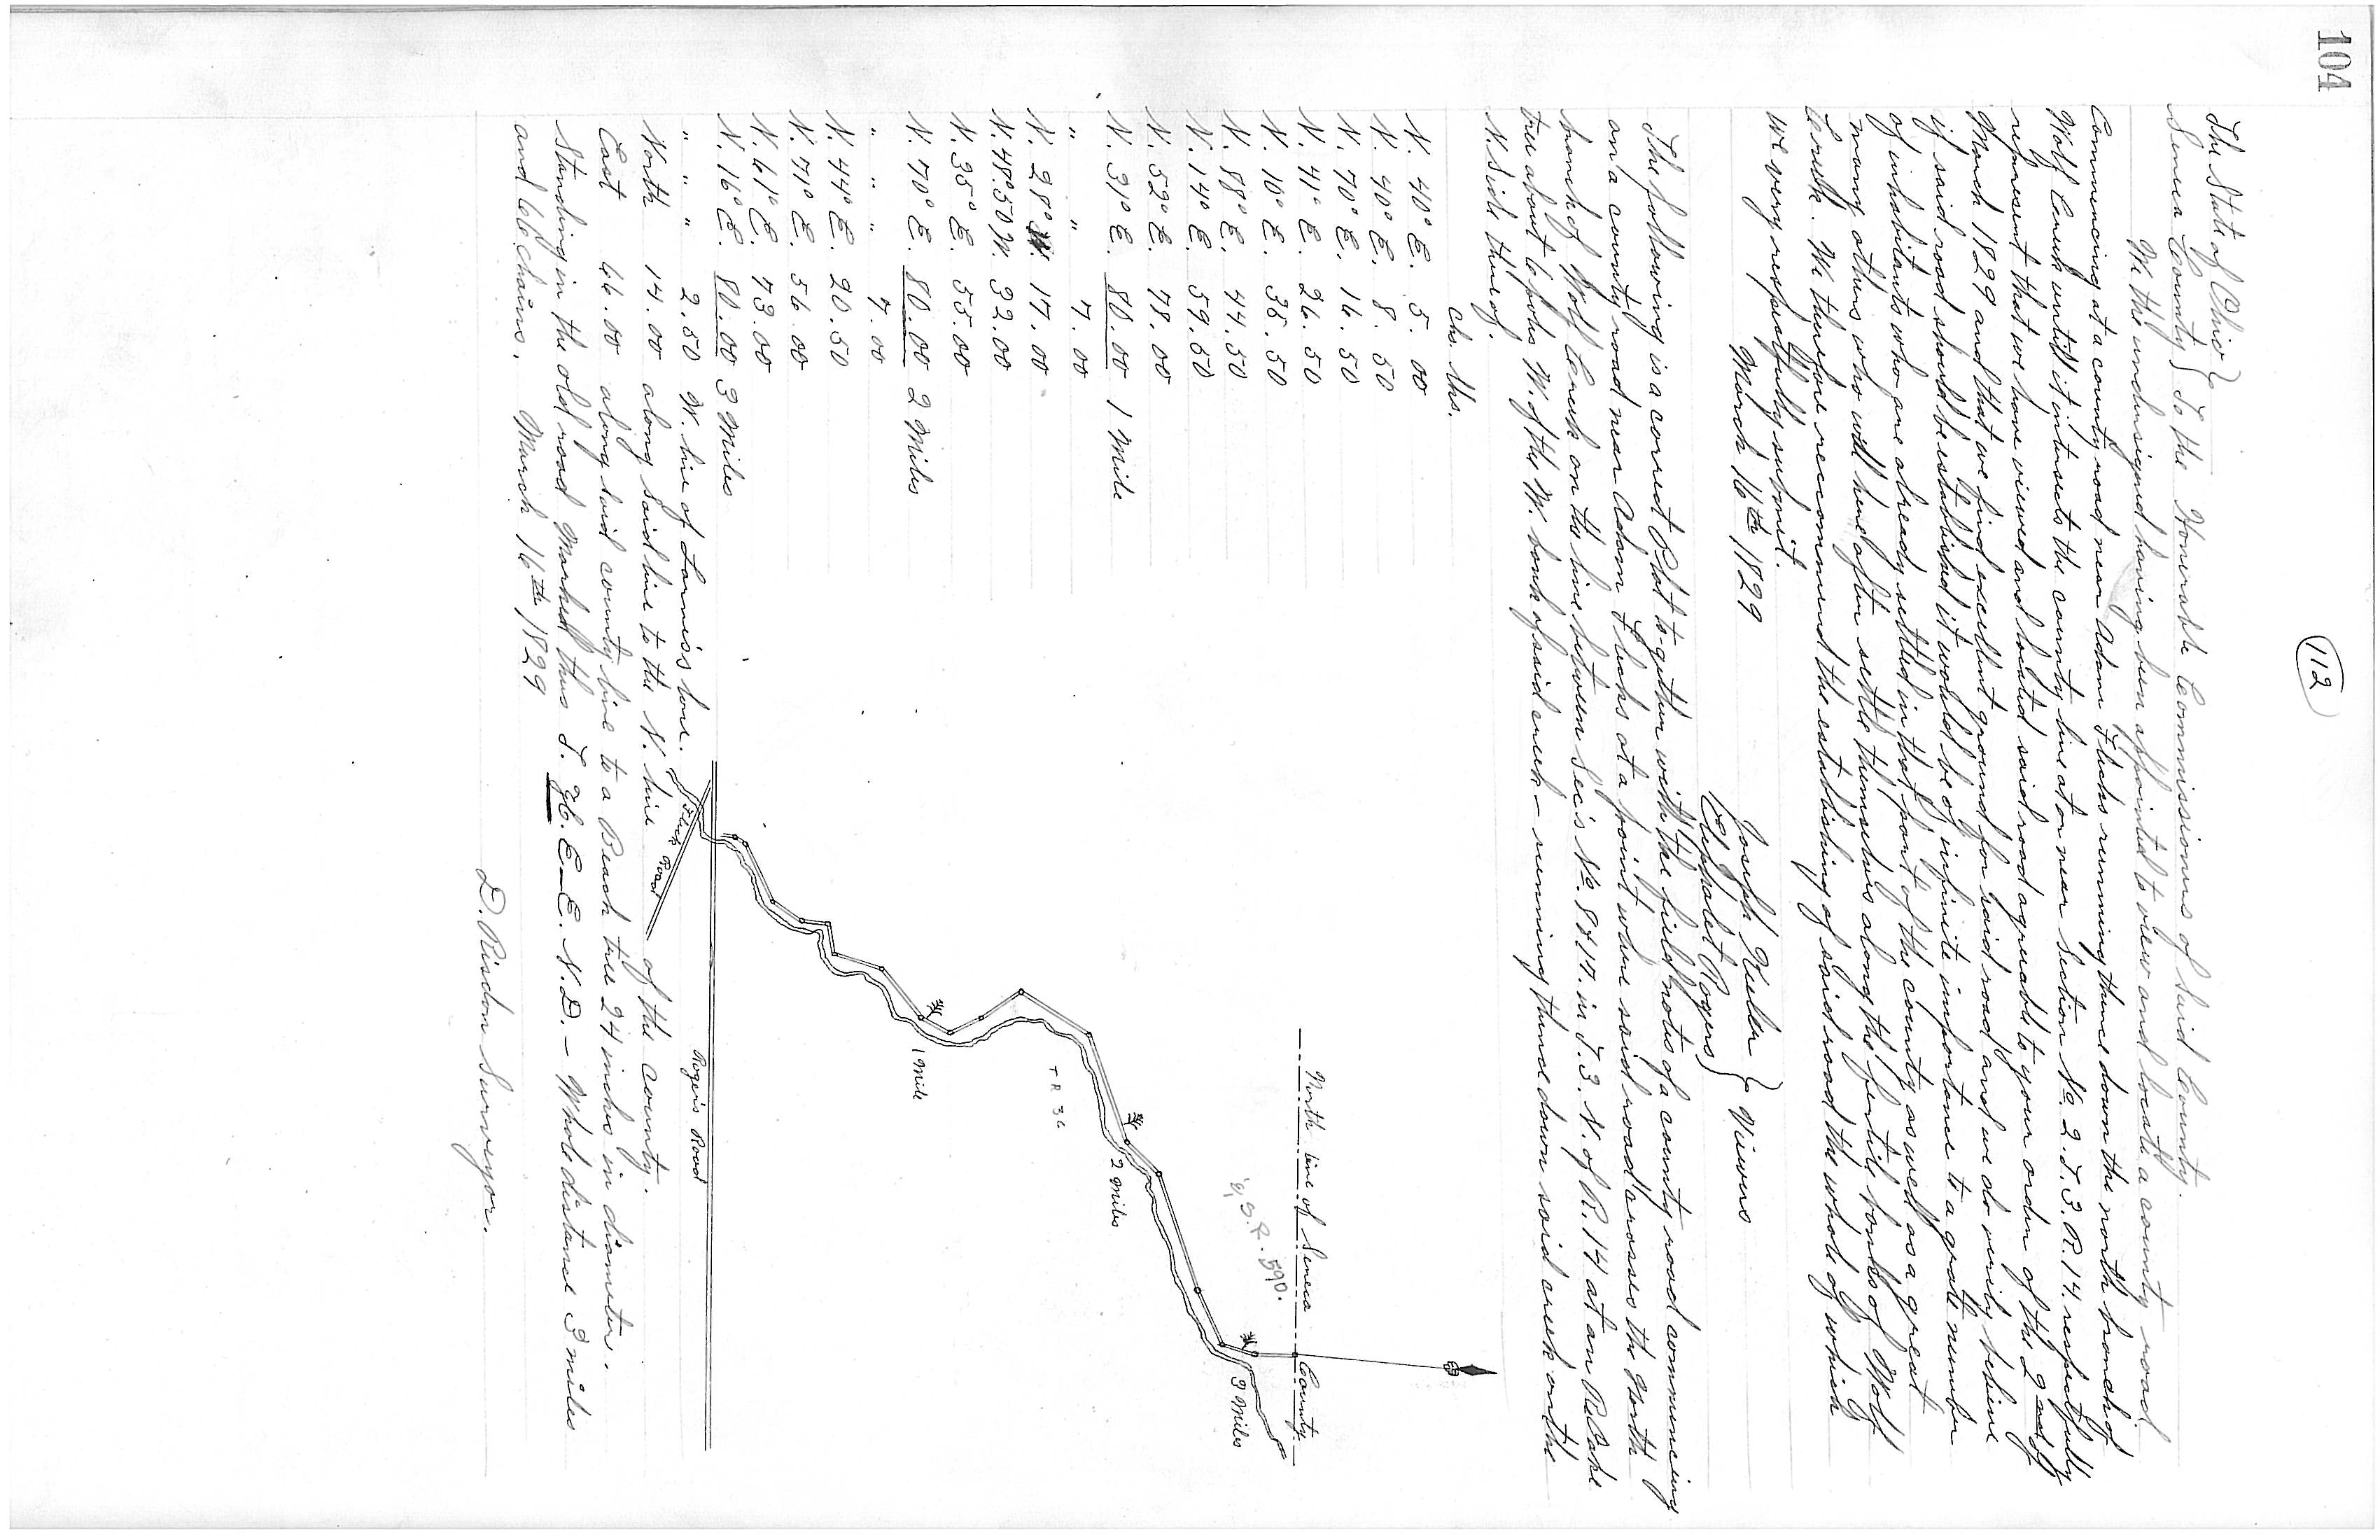 104
112
The State of Ohio }
Seneca County } To the Honorable Commissioners of Said County.
We the undersigned having been appointed to view and locate a county road
Commencing at a county road near Adam Flecks running thence down the north branch of
Wolf Creek until it intersects the county line at or near Section No. 2. T. 3. R. 14. respectfully
represent that we have viewed and located said road agreeable to your order of the 2nd of
March 1829 and that we find excellent ground for said road and we do verily believe
if said road should be established it would be of infinite importance to a grate number
of inhabitants who are already settled in that part of the county as well as a great
many others who will hereafter settle themselves along the fertile banks of Wolf
Creek. We therefore reccommend the establishing of said road the whole of which
we very respectfully submit.
March 16th 1829
Joseph } Viewers
Eliphalet Rogers }
The following is a correct Plat together with the field notes of a county road commencing
on a county road near Adam Flecks at a point where said road crosses the North
branch of Wolf Creek on the line between Sec's No. 8 & 17. in T. 3. N. of R. 14 at an
tree about 6 links W. of the W. bank of said creek - running thence down said creek on the
N. Side thereof.
Chs. lks.
N. 40° E. 5. 00
N. 40° E. 8. 50
N. 70° E. 16. 50
N. 41° E. 26. 50
N. 10° E. 38. 50
N. 88° E. 44. 50
N. 14° E. 59. 50
N. 52° E. 78. 00
N. 31° E. 80. 00 1 Mile
" " 7. 00
N. 28° W. 17. 00
N. 48°.50 W. 32. 00
N. 35° E. 55. 00
N. 70° E. 80. 00 2 Miles
" " 7. 00
N. 44° E. 20. 50
N. 71° E. 56. 00
N. 61° E. 73. 00
N. 16° E. 80. 00 3 Miles
" " " 2. 50 W. line of
North 14. 00 along Said line to the N. line of the county.
East 66. 00 along said county line to a Beach tree 24 inches in diameter.
Standing in the old road Marked thus T. H. E. E. E. N. D. - Whole distance 3 miles
and 66 Chains. March 16th 1829
D. Risdon Surveyor.
North line of Seneca County
3 Miles
2 Miles
TR 36
1 Mile
Rogers Road
Fleck Road